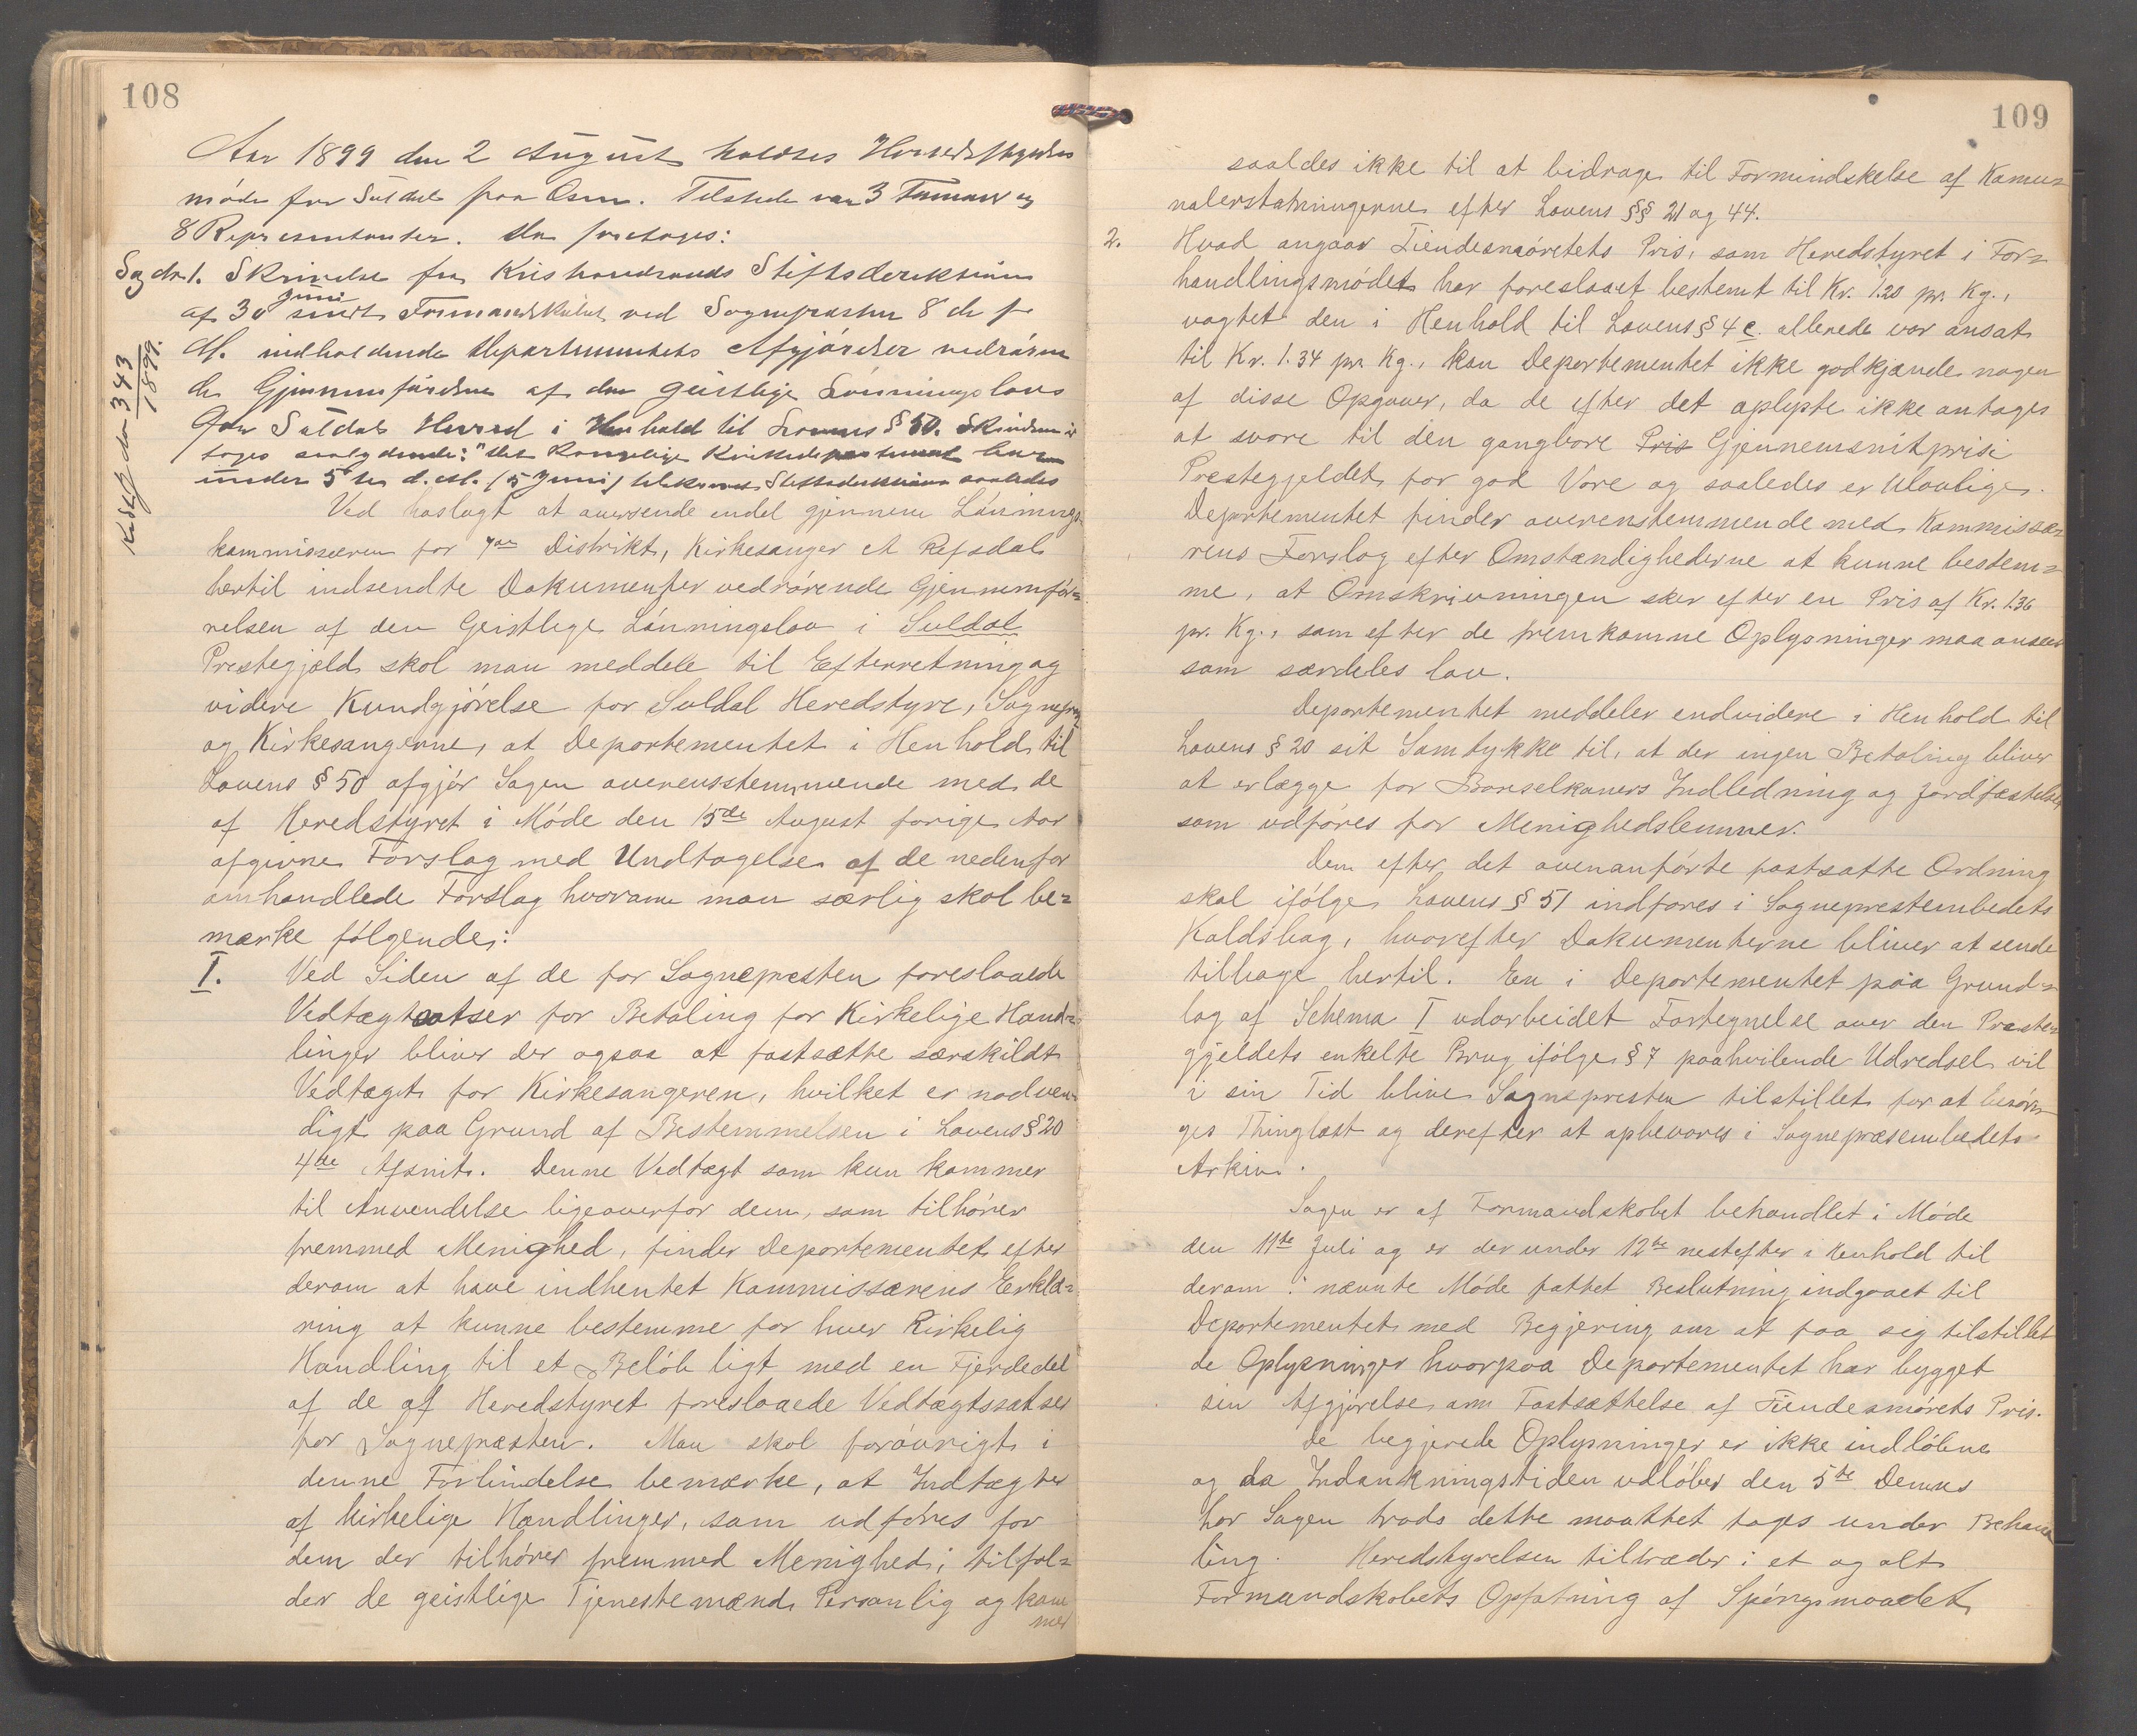 108
Aar 1899 den 2 August holdtes Herredsstyrelses
møde for Suldal paa Osen. Tilstede var 3 Formænd og
8 Representanter. Da foretoges:
Sag No 1. Skrivelse fra Kristiansands Stiftsdirektion
af 30 Juni sendt Formandskabet ved Sognepræsten 8 ds f
M. indholdende Departementets Afgjørelser vedrøren
de Gjennemførelsen af den geistlige Lønningslov
for Suldals Herred i Henhold til Lovens § 50. Skrivelsen i
tages saalydende: "Det Kongelige Kirkedepartement har
under 5te d. M. (5 Juni) tilskrevet Stiftsdirektionen saaledes
Kid
343
1899.
Ved hoslagt at oversende endel gjennem Lønnings-
kommissæren for 7de Distrikt, Kirkesanger A Refsdal
hertil indsendte Dokumenter vedrørende Gjennemfør=
relsen af den Geistlige Lønningslov i Suldal
Prestegjeld skal man meddele til Efterretning og
videre Kundgjørelse for Suldal Heredstyre, Sognepr
og Kirkesangerne, at Departementet i Henhold til
Lovens § 50 afgjør Sagen overensstemmende med de
af Heredstyret i Møde den 15de August forige Aar
afgivne Forslag med Undtagelse af de nedenfor
omhandlede Forslag hvorom man særlig skal be=
mærke følgende:
I. Ved Siden af de for Sognepresten foreslaaede
Vedtægtsatser for Betaling for Kirkelige Hand=
linger bliver der ogsaa at fastsætte særskildt
Vedtægt for Kirkesangeren, hvilket er nødven=
digt paa Grund af Bestemmelsen i Lovens § 20
4de Afsnit. Denne Vedtægt som kun kommer
til Anvendelse ligeoverfor dem, som tilhører
fremmed Menighed, finder Departementet efter
derom at have indhentet Kommissærens Erklæ=
ring at kunne bestemme for hver Kirkelig
Handling til et Beløb ligt med en Fjerdedel
af de af Heredstyret foreslaaede Vedtægtssatser
for Sognepræsten. Man skal forøvrigt i
denne Forbindelse bemærke, at Indtægter
af kirkelige Handlinger, som udføres for
dem der tilhører fremmed Menighed, tilfal=
der de geistlige Tjenestemænd Personlig og kom
mer
109
saaldes ikke til at bidrage til Formindskelse af Kamu=
nalerstatningerne efter Lovens §§ 21 og 44.
2. Hvad angaar Tiendesmørets Pris, som Heredstyret i For=
handlingsmødet har foreslaaet bestemt til Kr. 1.20 pr. Kg.,
vagtet den i Henhold til Lovens § 4 c. allerede var ansat
til Kr. 1.34 pr. Kg., kan Departementet ikke godkjende nogen
af disse Opgaver, da de efter det oplyste ikke antages
at svare til den gangbare Pris Gjennemsnitpris i
Prestegjeldet for god Vare og saaledes er Ulovlige.
Departementet finder overenstemmende med Kommissæ=
rens Forslag efter Omstændighederne at kunne bestem=
me, at Omskrivningen sker efter en Pris af Kr. 1.36
pr. Kg., som efter de fremkomne Oplysninger maa ansees
som særdeles lav.
Departementet meddeler endvidere i Henhold til
Lovens § 20 sit Samtykke til, at der ingen Betaling bliver
at erlægge for Barselkoners Indledning og Jordfæstelser
som udføres for Menighedslemmer.
Den efter det ovenanførte fastsatte Ordning
skal ifølge Lovens § 51 indføres i Sogneprestembedets
Kaldsbog, hvorefter Dokumenterne bliver at sende
tilbage hertil. En i Departementet paa Grund=
lag af Schema I udarbeidet Fortegnelse over den Præste=
gjeldets enkelte Brug ifølge § 7 paahvilende Udredsel vil
i sin Tid blive Sognepresten tilstillet for at besør=
ges Thinglæst og derefter at opbevares i Sognepræsembedets
Arkiv.
Sagen er af Formandskabet behandlet i Møde
den 11te Juli og er der under 12te nestefter i Henhold til
derom i nævnte Møde fattet Beslutning indgaaet til
Departementet med Begjering om at faa sig tilstillet
de Oplysninger hvorpaa Departementet har bygget
sin Afgjørelse om Fastsættelse af Tiendesmørets Pris.
De begjerede Oplysninger er ikke indløbne
og da Indankningstiden udløber den 5te Dennes
har Sagen trods dette maattet tages under Behand
ling. Heredstyrelsen tiltræder i et og alt
Formandskabets Opfatning af Spørgsmaalet